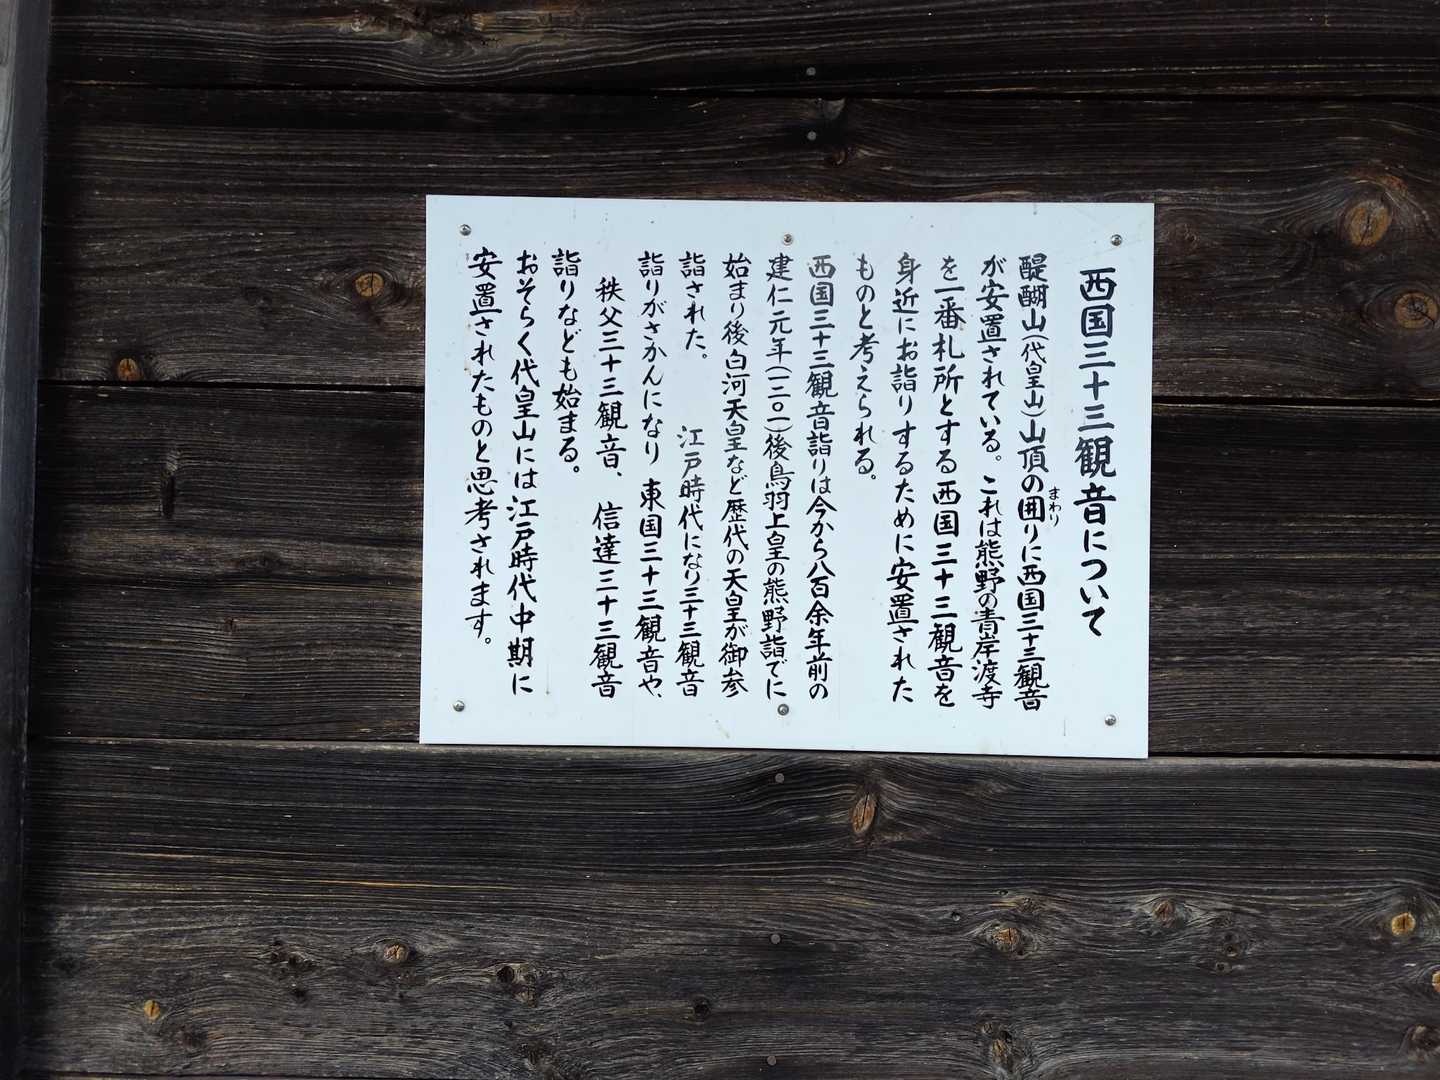 西国三十三観音について
醍醐山(代皇山)山頂の囲りに西国三十三観音
まわり
が安置されている。これは熊野の青岸渡寺
を一番札所とする西国三十三観音を
身近にお詣りするために安置された
ものと考えられる。
西国三十三観音詣りは今から八百余年前の
建仁元年(一二〇一)後鳥羽上皇の熊野詣でに
始まり後白河天皇など歴代の天皇が御参
詣された。 江戸時代になり三十三観音
詣りがさかんになり東国三十三観音や、
秩父三十三観音、信達三十三観音
詣りなども始まる。
おそらく代皇山には江戸時代中期に
安置されたものと思考されます。